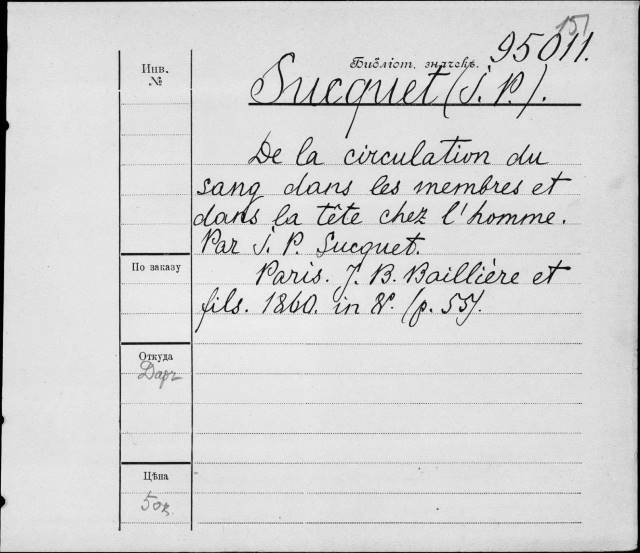 151
95011.
Библіот. значекъ.
Инв.
№
Sucquet (J. P.).
De la circulation du
sang dans les membres et
dans la tête chez l'homme.
Par J. P. Sucquet.
По заказу
Paris. J. B. Baillière et
fils. 1860. in 8º. (p. 55).
Откуда
Даръ
Цѣна
50к.